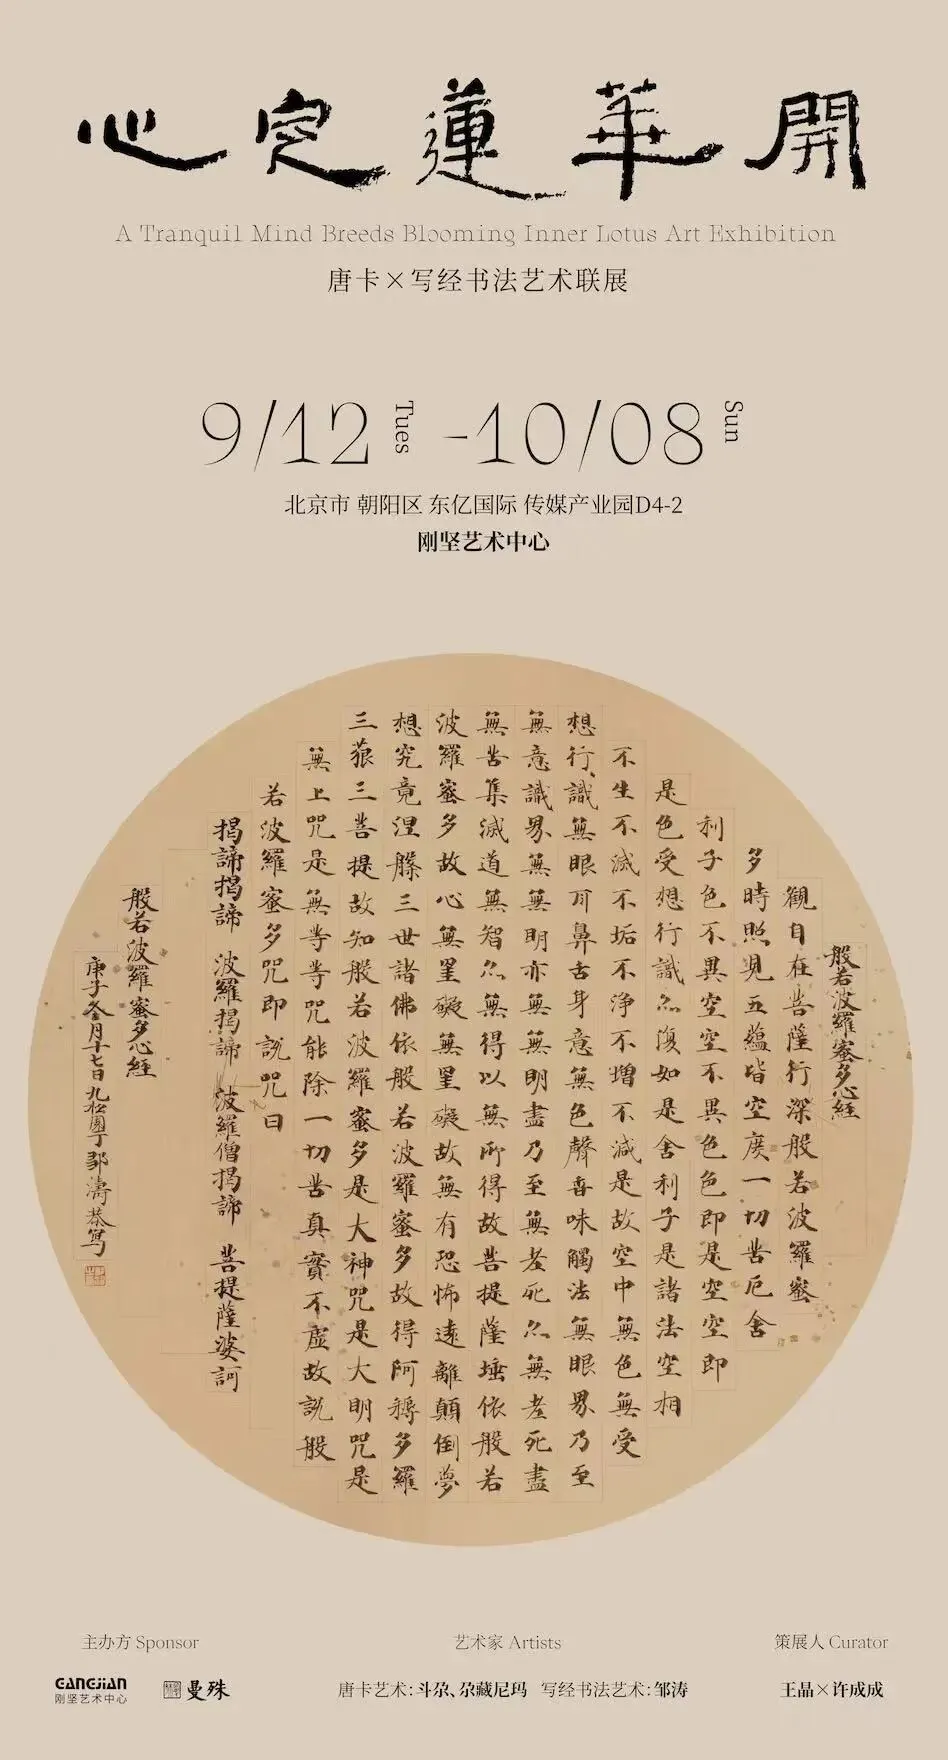 心定蓮華開
A Tranquil Mind Breeds Blooming Inner Lotus Art Exhibition
唐卡×写经书法艺术联展
9/12 Tues -10/08 Sun
北京市 朝阳区 东亿国际 传媒产业园D4-2
刚坚艺术中心
般若波羅蜜多心経
觀自在菩薩行深般若波羅蜜
多時照見五蘊皆空度一切苦厄舍
利子色不異空空不異色色即是空空即
是色受想行識亦復如是舍利子是諸法空相
不生不滅不垢不淨不增不減是故空中無色無受
想行識無眼耳鼻舌身意無色聲香味觸法無眼界乃至
無意識界無無明亦無無明盡乃至無老死亦無老死盡
無苦集滅道無智亦無得以無所得故菩提薩埵依般若
波羅蜜多故心無罣礙無罣礙故無有恐怖遠離顛倒夢
想究竟涅槃三世諸佛依般若波羅蜜多故得阿耨多羅
三藐三菩提故知般若波羅蜜多是大神咒是大明咒是
無上咒是無等等咒能除一切苦真實不虛故說般
若波羅蜜多咒即說咒曰
揭諦揭諦 波羅揭諦 波羅僧揭諦 菩提薩婆訶
般若波羅蜜多心經
庚子冬月十七日九松園丁鄒濤恭寫
主办方 Sponsor
GANGJIAN
刚坚艺术中心
曼殊
艺术家 Artists
唐卡艺术:斗尕、尕藏尼玛 写经书法艺术:邹涛
策展人 Curator
王晶×许成成